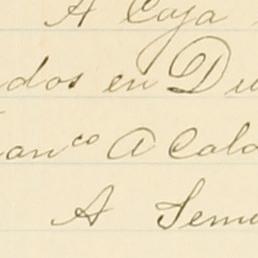 A Caja
dos en D
an^co A Cala
A Sem